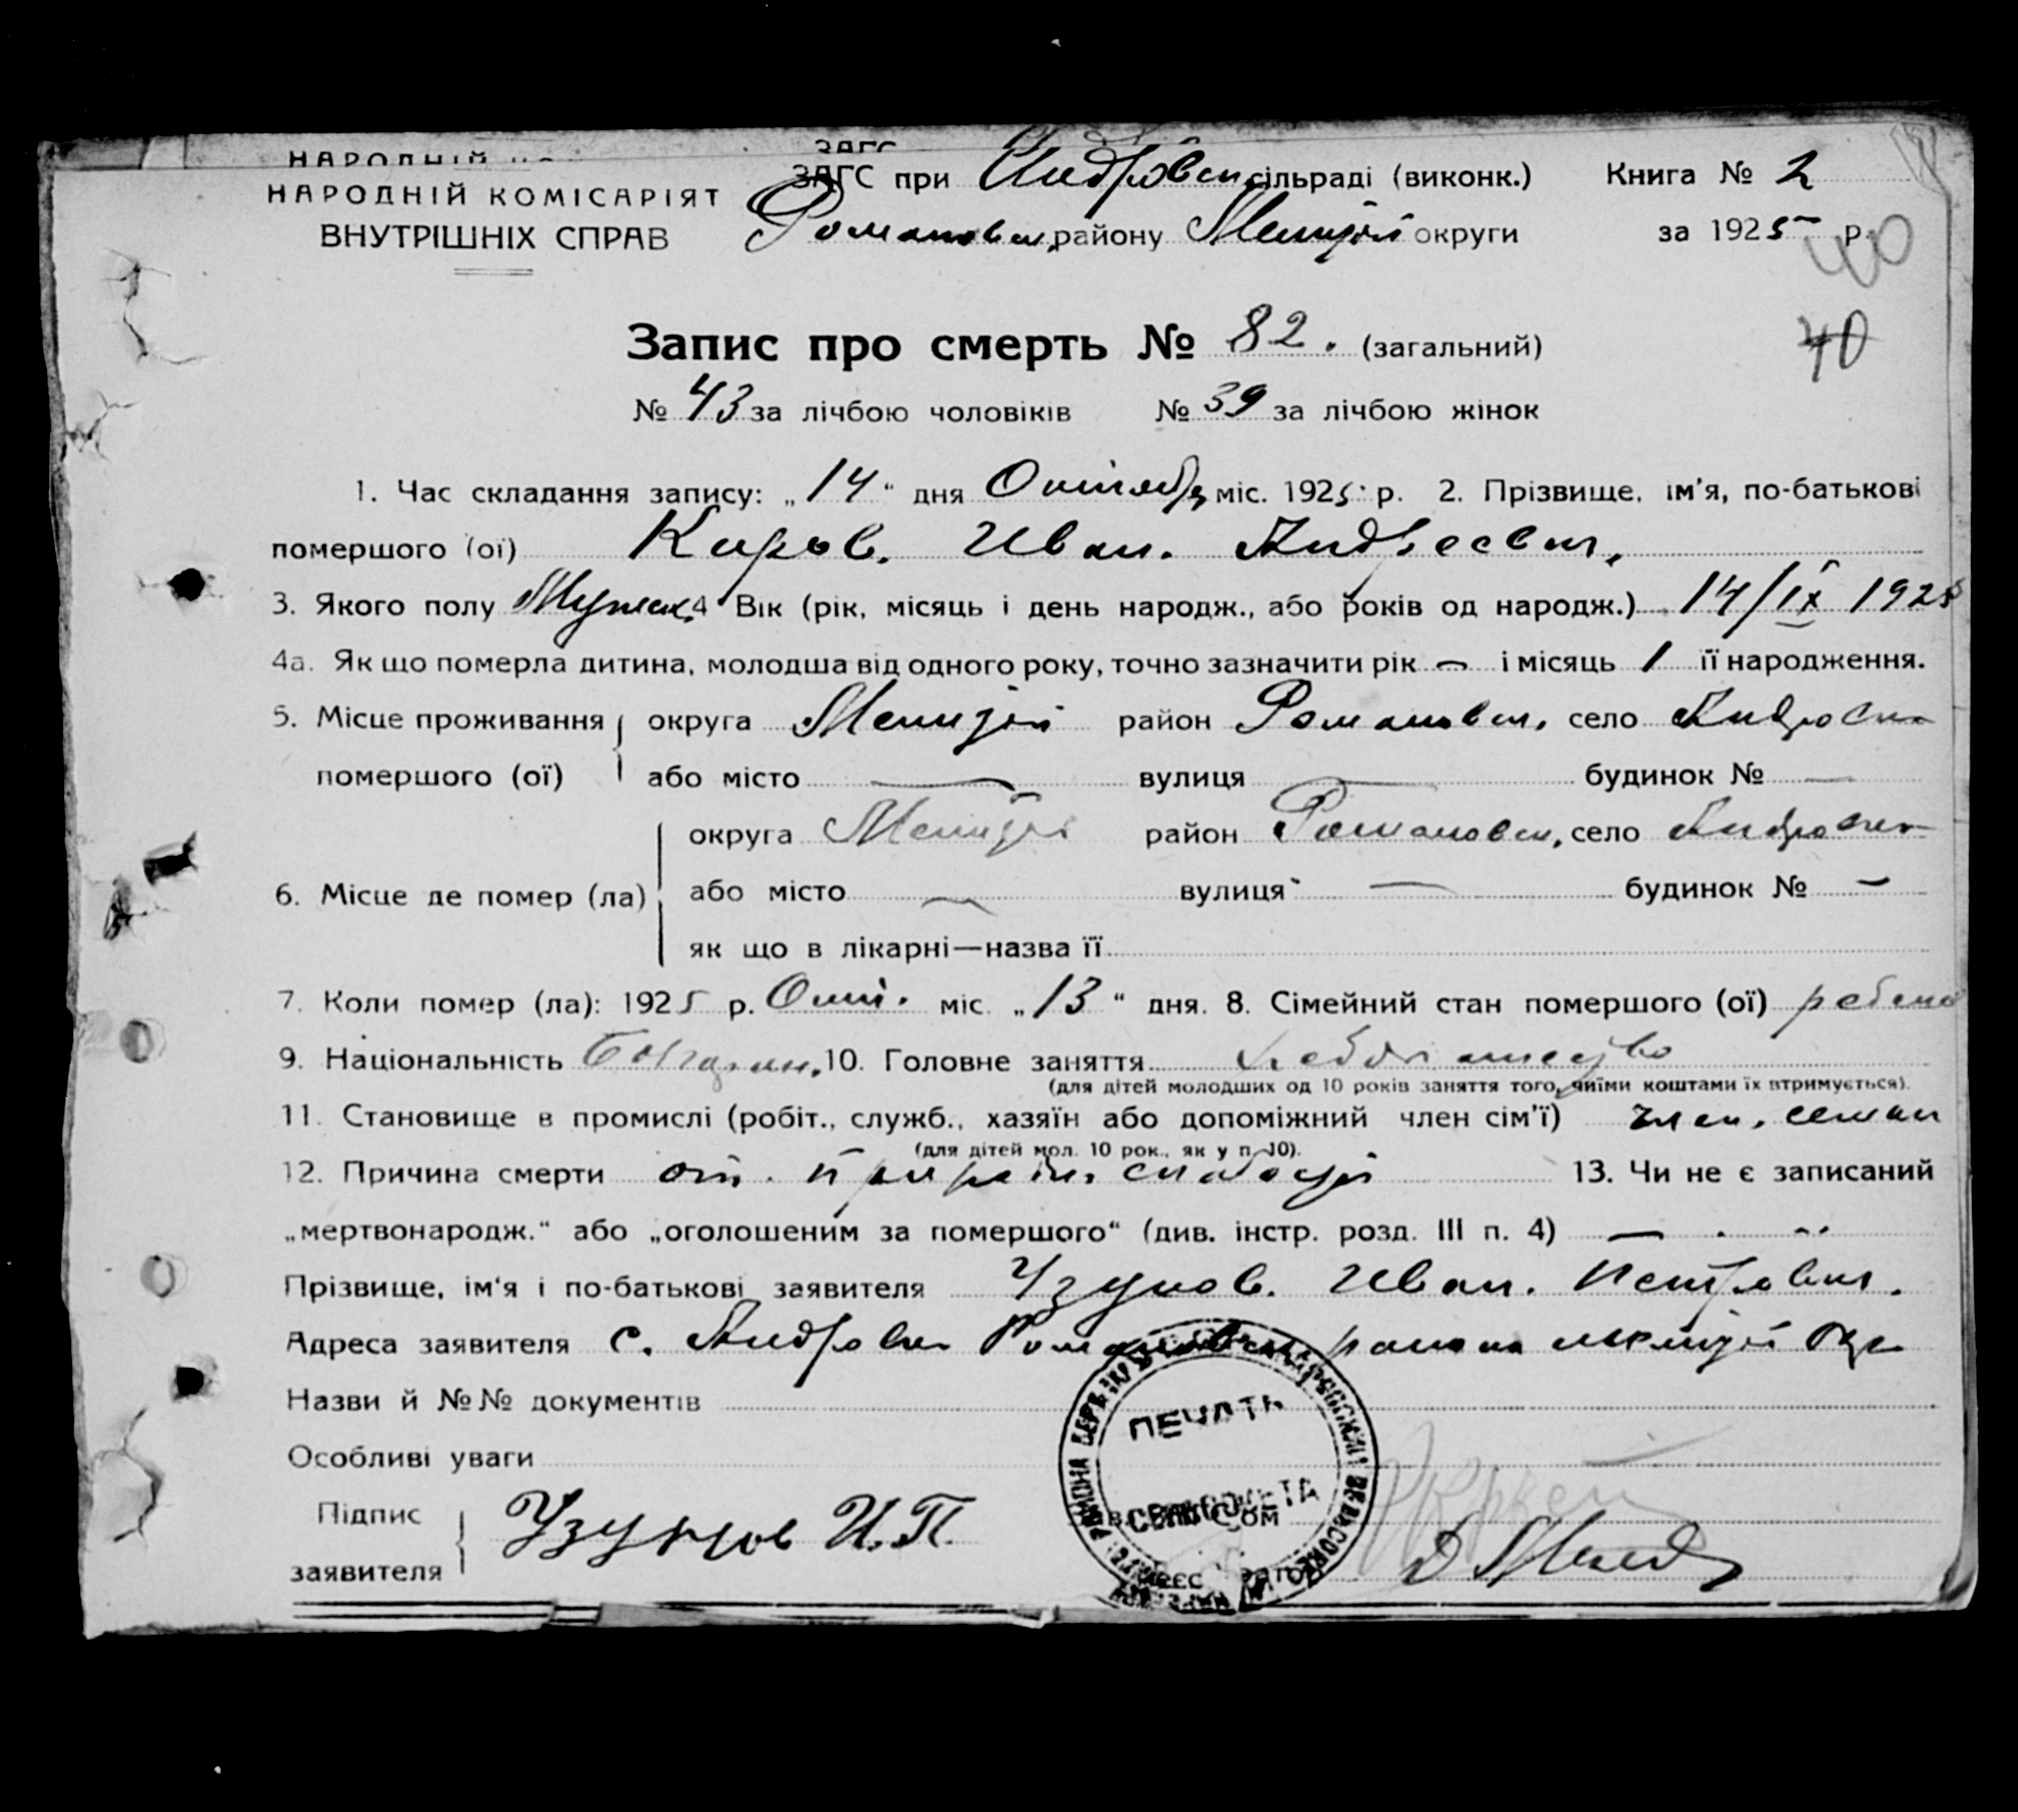 НАРОДНІЙ КОМІСАРІЯТ
ВНУТРІШНІХ СПРАВ
ЗАГС при Андровск сільраді (виконк.) Книга № 2
Романовск. району округи за 1925 р.
40
40
Запис про смерть № 82. (загальний)
№ 43 за лічбою чоловіків № 39 за лічбою жінок
1. Час складання запису: „14" дня Октября міс. 1925 р. 2. Прізвище, ім'я, по-батькові
помершого (ої) Киров. Иван. Андреевич.
3. Якого полу Мужск. 4 Вік (рік, місяць і день народж., або років од народж.) 14/IX 1925
4а. Як що померла дитина, молодша від одного року, точно зазначити рік — і місяць 1 її народження.
5. Місце проживання округа район Романовск. село Андровка
помершого (ої) або місто — вулиця — будинок № —
округа район Романовск. село Андровка
6. Місце де помер (ла) або місто — вулиця — будинок № —
як що в лікарні—назва її
7. Коли помер (ла): 1925 р. Окт. міс. „13" дня. 8. Сімейний стан помершого (ої)
9. Національність Болгарин. 10. Головне заняття Хлебопашество
(для дітей молодших од 10 років заняття того, чиїми коштами їх втримується).
11. Становище в промислі (робіт., служб., хазяїн або допоміжний член сім'ї) член. семьи
(для дітей мол. 10 рок., як у п. 10).
12. Причина смерти от. 13. Чи не є записаний
„мертвонародж." або „оголошеним за помершого" (див. інстр. розд. III п. 4) —
Прізвище, ім'я і по-батькові заявителя Узунов. Иван. Петрович.
Адреса заявителя с. Андровка Романовск района
Назви й №№ документів
Особливі уваги
ПЕЧАТЬ
СЕЛЬСОВЕТА
Підпис
заявителя Узунов И.П.